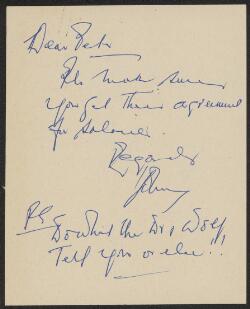 Dear Pete
Pls make sure
you get their agreement
for salaries.
Regards
Johnny
PS
Do what the Dr & Wolf
Tell you or else!!